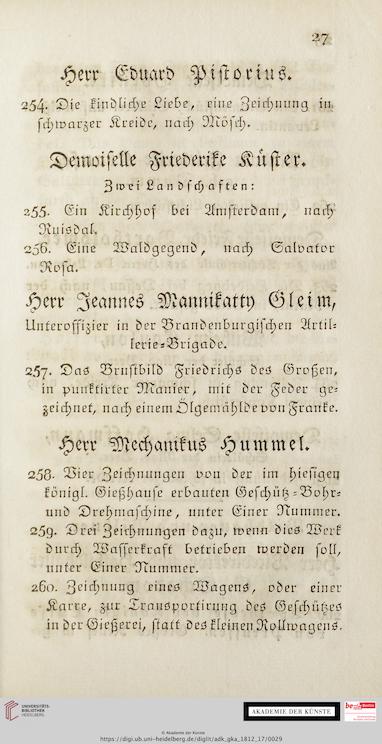 27
Herr Eduard Pistorius.
254. Die kindliche Liebe, eine Zeichnung in
schwarzer Kreide, nach Mösch.
Demoiselle Friederike Küster.
Zwei Landschaften:
255. Ein Kirchhof bei Amsterdam, nach
Ruisdal.
256. Eine Waldgegend, nach Salvator
Rosa.
Herr Jeannes Mannikatty Gleim,
Unteroffizier in der Brandenburgischen Artil-
lerie-Brigade.
257. Das Brustbild Friedrichs des Großen,
in punktirter Manier, mit der Feder ge-
zeichnet, nach einem Ölgemählde von Franke.
Herr Mechanikus Hummel.
258. Vier Zeichnungen von der im hiesigen
königl. Gießhause erbauten Geschütz-Bohr-
und Drehmaschine, unter Einer Nummer.
259. Drei Zeichnungen dazu, wenn dies Werk
durch Wasserkraft betrieben werden soll,
unter Einer Nummer.
260. Zeichnung eines Wagens, oder einer
Karre, zur Transportirung des Geschützes
in der Gießerei, statt des kleinen Rollwagens.
UNIVERSITÄTS-
BIBLIOTHEK
HEIDELBERG
AKADEMIE DER KÜNSTE
© Akademie der Künste
https://digi.ub.uni-heidelberg.de/diglit/adk_gka_1812_17/0029